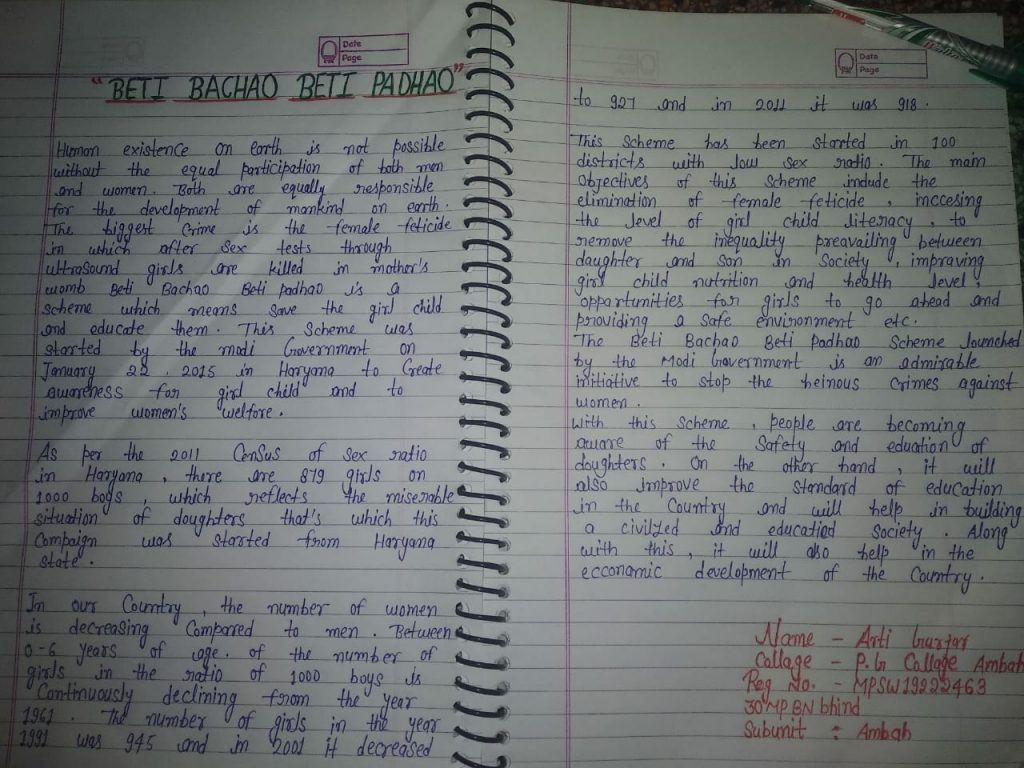 Date
Page
"BETI BACHAO BETI PADHAO"
Human existence on earth is not possible
without the equal participation of both men
and women. Both are equally responsible
for the development of mankind on earth.
The biggest crime is the female feticide
in which after sex tests through
ultrasound girls are killed in mother's
womb Beti Bachao Beti padhao is a
scheme which means save the girl child
and educate them. This Scheme was
started by the modi Government on
January 22, 2015 in Haryana to Create
awareness for girl child and to
improve women's welfore.
As per the 2011 Census of sex ratio
in Haryana, there are 879 girls on
1000 boys, which reflects the miserable
situation of doughters that's which this
Compaign was started from Haryana
state.
In our Country, the number of women
is decreasing Compared to men. Between
0-6 years of age. of the number of
girls in the ratio of 1000 boys is
Continuously declining from the year
1961. The number of girls in the year
1991 was 945 and in 2001 it decreased
Date
Page
to 927 and in 2011 it was 918.
This Scheme has been started in 100
districts with low sex ratio. The main
objectives of this Scheme indude the
elimination of female feticide, inccesing
the level of girl child literacy, to
remove the inequality preavailing between
daughter and son in Society, impraving
girl child nutrition and health level,
opportunities for girls to go ahead and
providing a safe environment etc.
The Beti Bachao Beti Padhao Scheme launched
by the Modi Government is an admirable
initiative to stop the heinous Crimes against
women.
with this Scheme, people are becoming
aware of the Safety and eduation of
doughters. On the other hand, it will
also improve the standard of education
in the Country and will help in building
a civilzed and educatiod Society. Along
with this, it will also help in the
ecconamic development of the Country.
Name - Arti Gurjar
Callage - P.G Callage Ambah
Reg No. - MPSW19222463
30 MP BN bhind
Subunit : Ambah